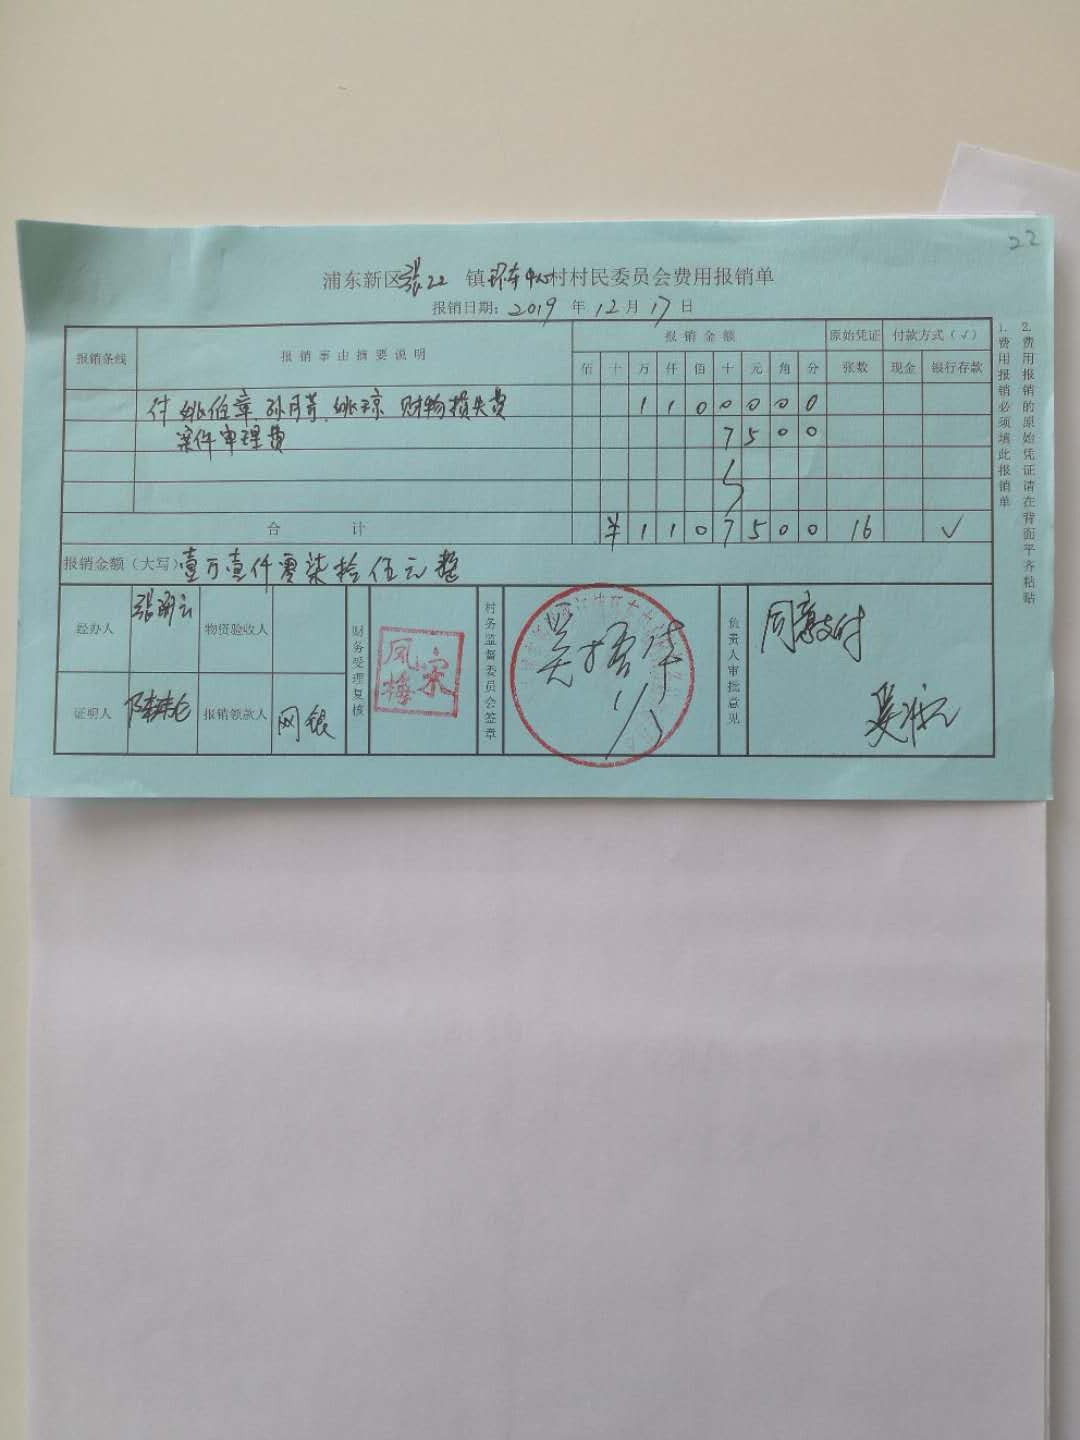 22
浦东新区张江镇环东中心村村民委员会费用报销单
报销日期：2019年12月17日
报销条线 报销事由摘要说明 报销金额 原始凭证 付款方式（√）
佰 十 万 仟 佰 十 元 角 分 张数 现金 银行存款
付 姚伯章、孙月芳、姚琼 财物损失费 1 1 0 0 0 0 0
案件审理费 7 5 0 0
合计 ¥ 1 1 0 7 5 0 0 16 √
报销金额（大写）壹万壹仟零柒拾伍元整
经办人 物资验收人 财务受理复核 宋凤梅 村务监督委员会签章 负责人审批意见 同意支付
证明人 报销领款人 网银
1. 费用报销必须填此报销单
2. 费用报销的原始凭证请在背面平齐粘贴